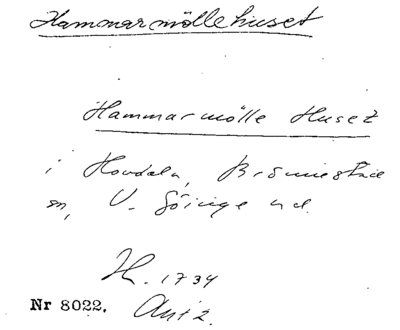 Hammarmöllehuset
Hammarmölle Huset
i Hovdala, Brönnestad
sn, V. Göinge hd.
H. 1734
Nr 8022. Ant 2.